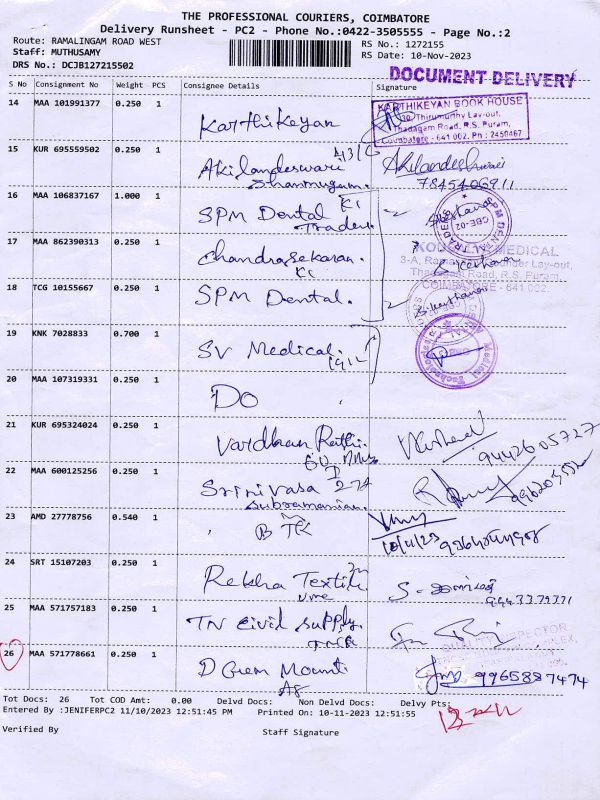 THE PROFESSIONAL COURIERS, COIMBATORE
Delivery Runsheet - PC2 - Phone No.:0422-3505555 - Page No.:2
Route: RAMALINGAM ROAD WEST
RS No.: 1272155
Staff: MUTHUSAMY
RS Date: 10-Nov-2023
DRS No.: DCJB127215502
DOCUMENT DELIVERY
S No Consignment No Weight PCS Consignee Details Signature
14 MAA 101991377 0.250 1 Karthikeyan
KARTHIKEYAN BOOK HOUSE
30, Thirumurthy Lay-out,
Thadagam Road, R.S. Puram,
Coimbatore - 641 002. Ph : 2450467
15 KUR 695559502 0.250 1 Akilandeswari
Shanmugam.
7845406911
16 MAA 106837167 1.000 1 SPM Dental
Traders
17 MAA 862390313 0.250 1 Chandrasekaran
MEDICAL
Thadagam Road, R.S. Puram,
COIMBATORE - 641 002.
18 TCG 10155667 0.250 1 SPM Dental.
19 KNK 7028833 0.700 1 SV Medical.
20 MAA 107319331 0.250 1 DO
21 KUR 695324024 0.250 1 Vardhan Rathi.
9442605727
22 MAA 600125256 0.250 1 Srinivasa
Subramanian.
23 AMD 27778756 0.540 1 B TK
10/11/23
24 SRT 15107203 0.250 1 Rekha Textile
25 MAA 571757183 0.250 1 TN Civil Supply
INSPECTOR
26 MAA 571778661 0.250 1 D Gem Mount
9965887474
Tot Docs: 26 Tot COD Amt: 0.00 Delvd Docs: Non Delvd Docs: Delvy Pts:
Entered By :JENIFERPC2 11/10/2023 12:51:45 PM Printed On: 10-11-2023 12:51:55
Verified By Staff Signature